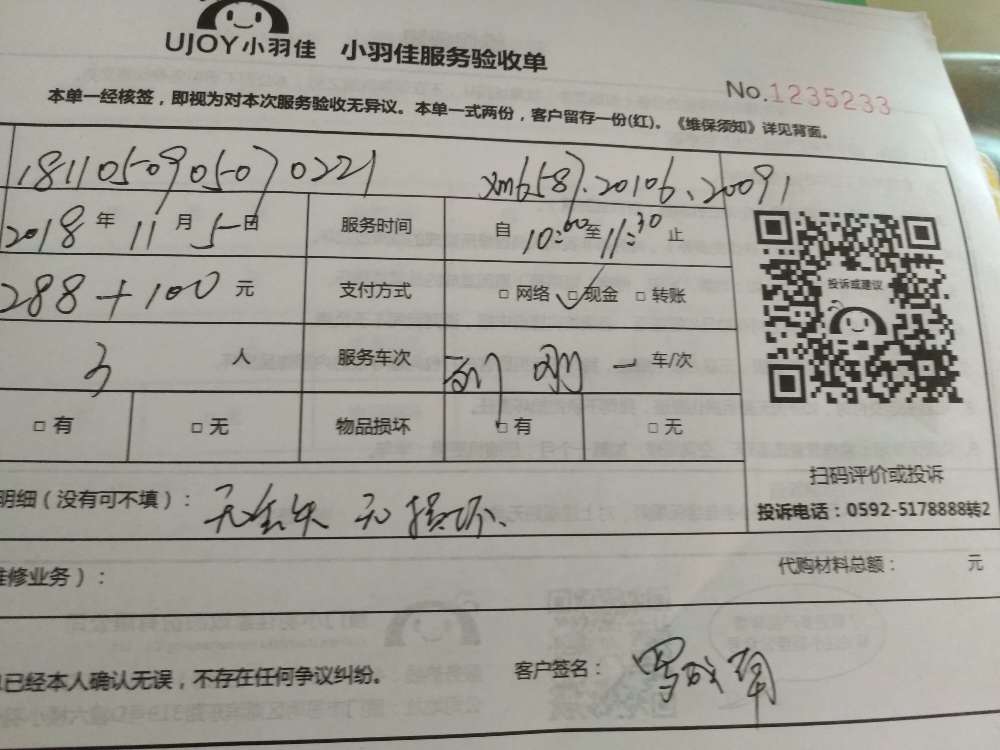 UJOY小羽佳 小羽佳服务验收单
No.1235233
本单一经核签，即视为对本次服务验收无异议。本单一式两份，客户留存一份(红)。《维保须知》详见背面。
1811050905070221 xm6587.20106.20091
2018年11月5日 服务时间 自10:00至11:30止
288+100元 支付方式 □网络 □现金 □转账
3人 服务车次 一车/次
□有 □无 物品损坏 □有 □无
投诉或建议
扫码评价或投诉
投诉电话：0592-5178888转2
明细（没有可不填）：无丢失 无损坏
维修业务）： 代购材料总额： 元
已经本人确认无误，不存在任何争议纠纷。 客户签名：